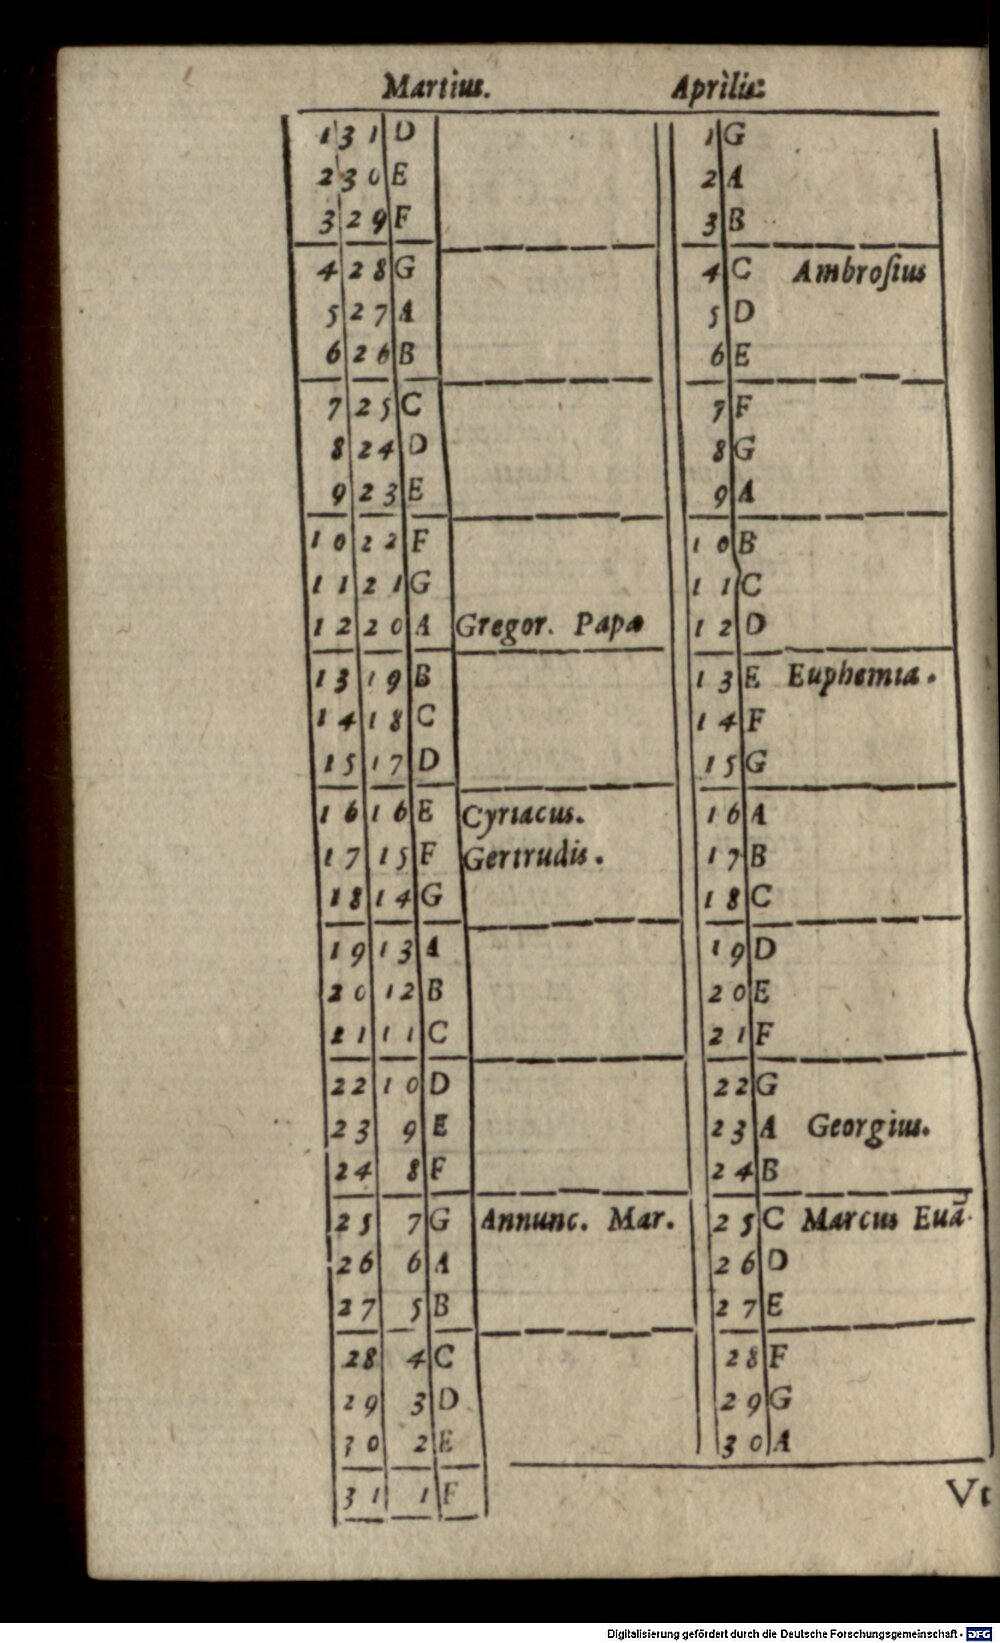 Martius. Aprilis
1 31 D 1 G
2 30 E 2 A
3 29 F 3 B
4 28 G 4 C Ambroſius
5 27 A 5 D
6 26 B 6 E
7 25 C 7 F
8 24 D 8 G
9 23 E 9 A
10 22 F 10 B
11 21 G 11 C
12 20 A Gregor. Papa 12 D
13 19 B 13 E Euphemia.
14 18 C 14 F
15 17 D 15 G
16 16 E Cyriacus. 16 A
17 15 F Gertrudis. 17 B
18 14 G 18 C
19 13 A 19 D
20 12 B 20 E
21 11 C 21 F
22 10 D 22 G
23 9 E 23 A Georgius.
24 8 F 24 B
25 7 G Annunc. Mar. 25 C Marcus Euā.
26 6 A 26 D
27 5 B 27 E
28 4 C 28 F
29 3 D 29 G
30 2 E 30 A
31 1 F
Vt
Digitalisierung gefördert durch die Deutsche Forschungsgemeinschaft - DFG